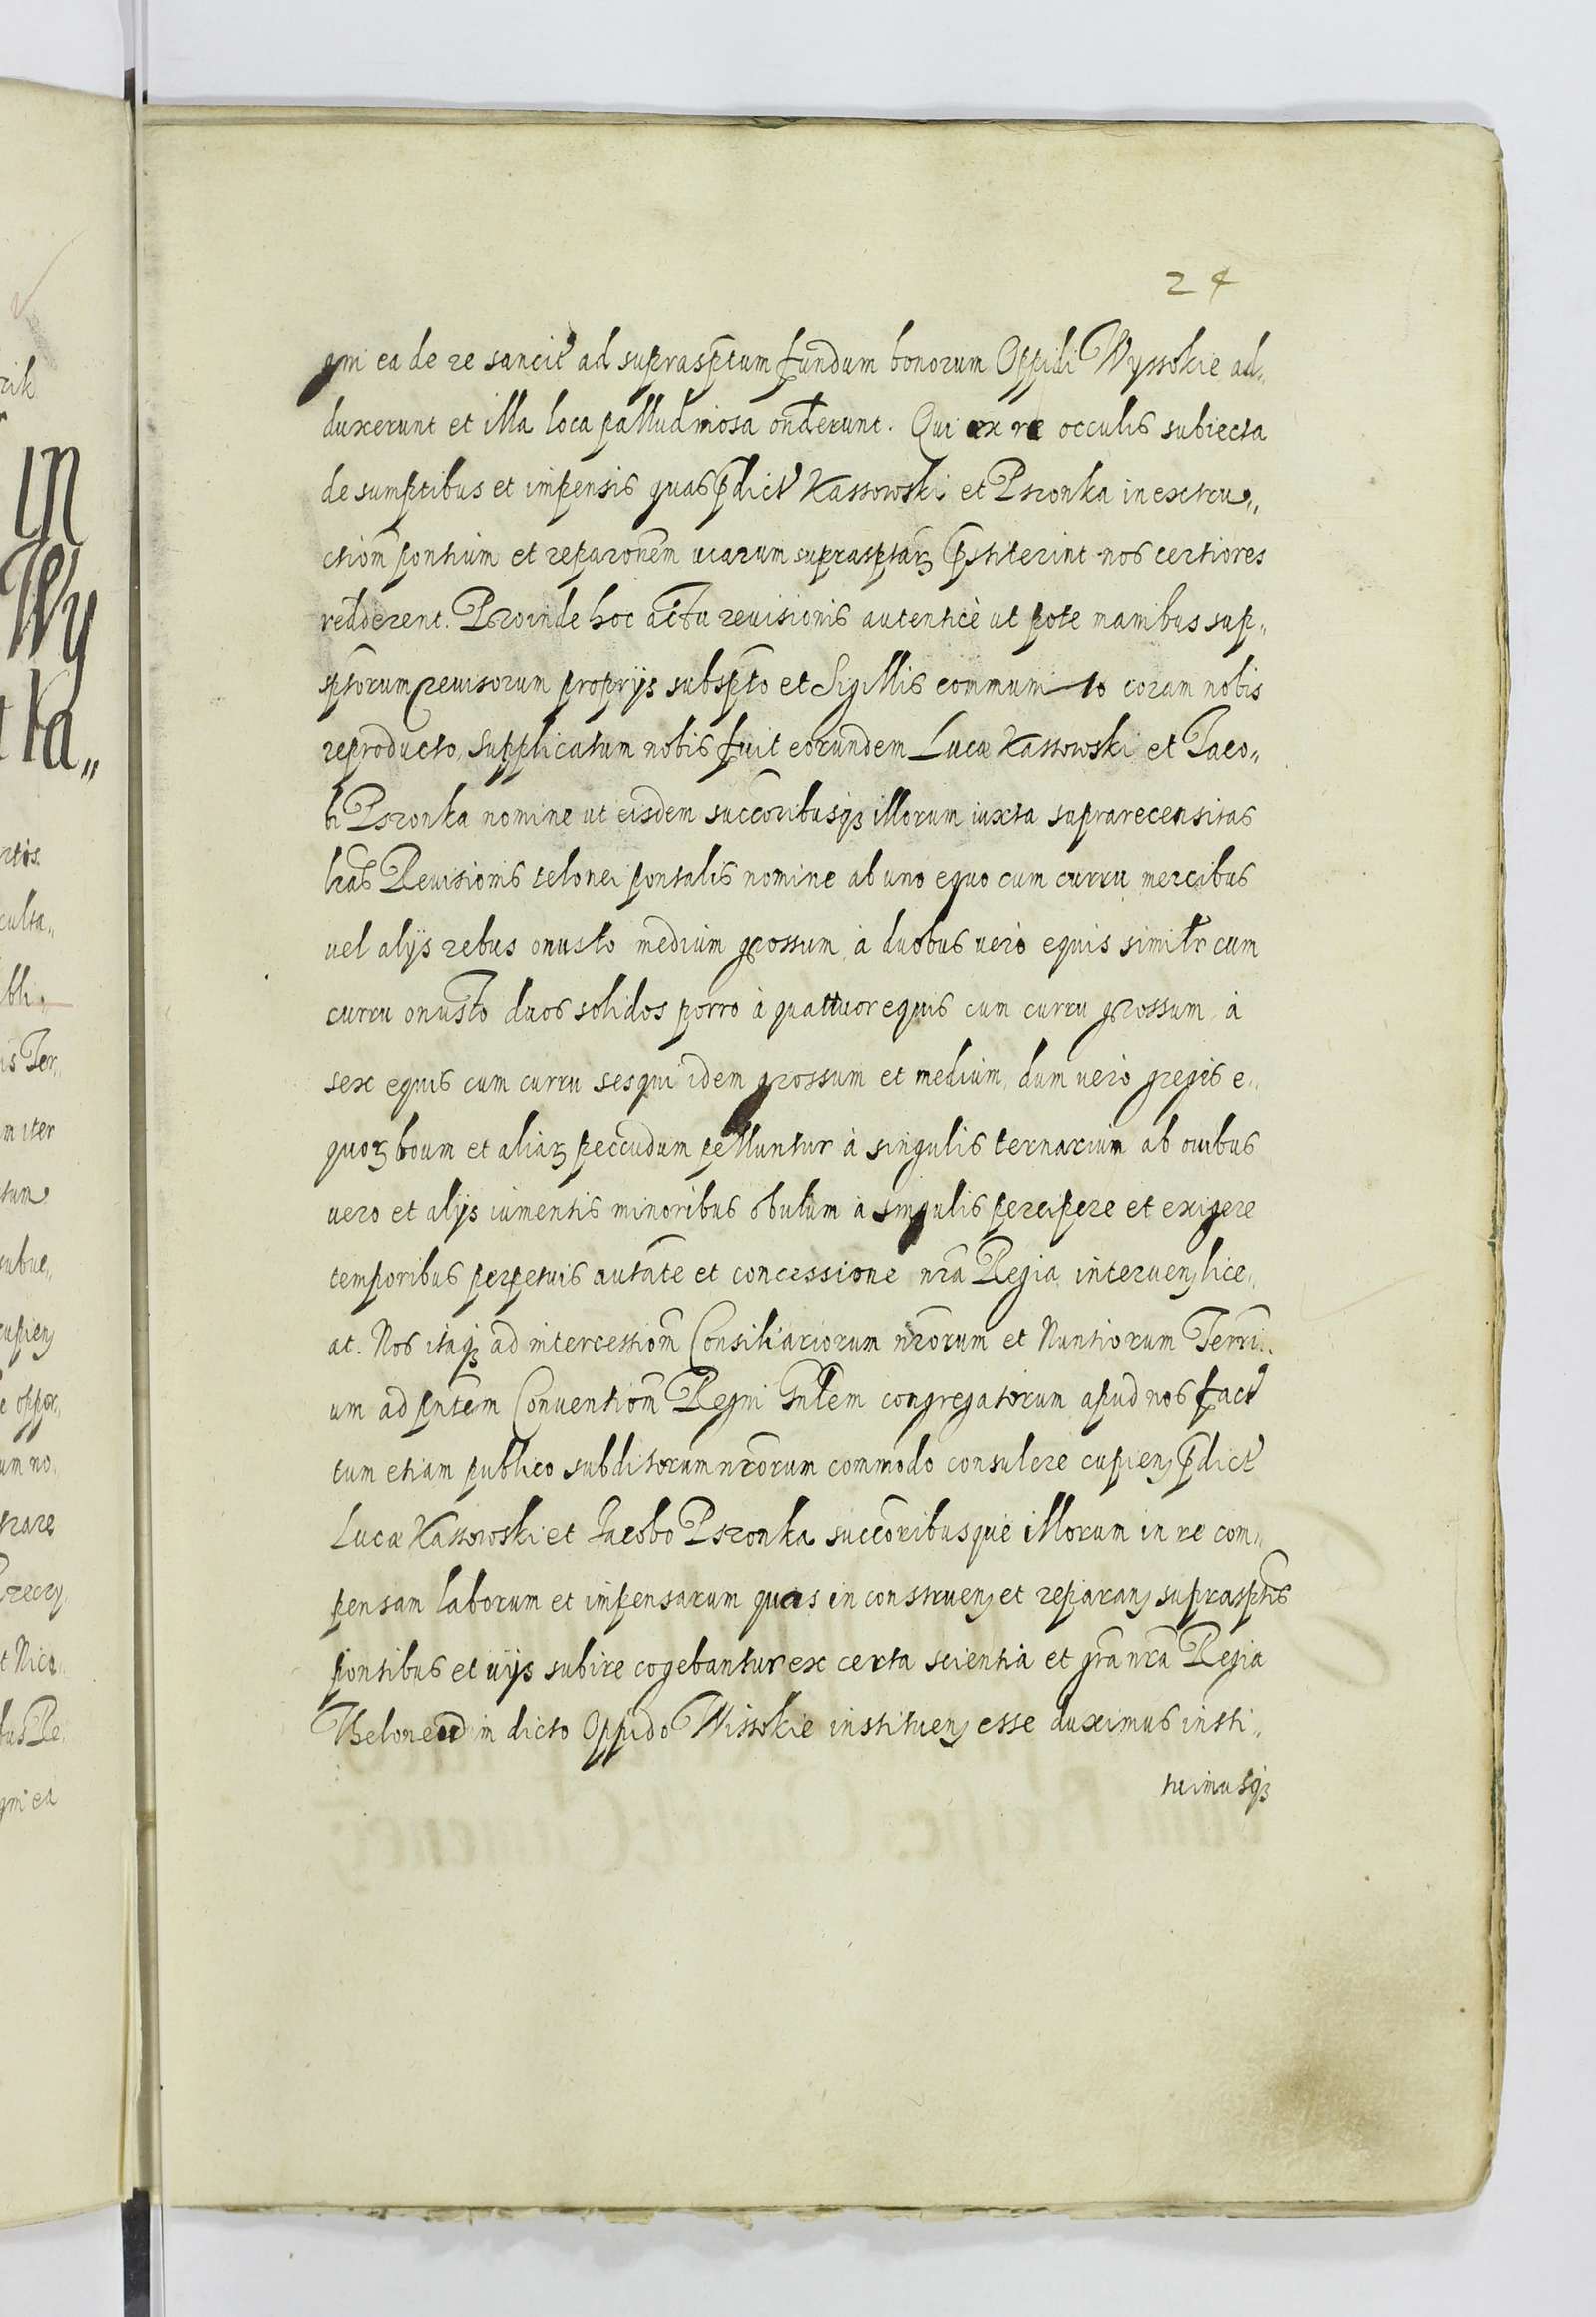 24
gni ea de re sancit' ad suprasptum fundum bonorum Oppidi Wyssokie ad„
duxerunt et illa loca palludinosa onderunt. Qui ex re occulis subiecta
de sumptibus et impensis quas pdict' Kassowski et Psronka in exstru„
ctiom pontium et reparonem uiarum suprasptarꝫ pstiterint nos certiores
redderent. Proinde hoc actu reuisionis autenticè ut pote manibus sup„
sptorum reuisorum proprijs subspto et Sigillis communito coram nobis
reproducto, supplicatum nobis fuit eorundem Lucæ Kassowski et Jaco„
bi Psronka nomine ut eisdem succoribusqꝫ illorum iuxta suprarecensitas
lras Reuisionis telonei pontalis nomine ab uno equo cum curru mercibus
uel alijs rebus onusto medium grossum, à duobus uerò equis similr cum
curru onusto duos solidos porro à quattuor equis cum curru grossum, à
sex equis cum curru sesqui idem grossum et medium, dum uerò greges e„
quorꝫ boum et aliarꝫ peccudum pelluntur à singulis ternarium ab ouibus
uero et alijs iumentis minoribus obulum à singulis percipere et exigere
temporibus perpetuis autate et concessione nra Regia interuenꝫ lice„
at. Nos itaqꝫ ad intercessiom Consiliariorum nrorum et Nuntiorum Terri„
um ad pntem Conuentiom Regni Gnlem congregatorum apud nos fact'
tum etiam publico subditorum nrorum commodo consulere cupienꝫ pdict'
Lucæ Kassowski et Jacobo Psronka succoribusque illorum in re com„
pensam laborum et impensarum quas in construenꝫ et reparanꝫ suprasptis
pontibus et uijs subire cogebantur ex certa scientia et gra nra Regia
Theloneum in dicto Oppido Wissokie instituenꝫ esse duximus insti„
tuimusqꝫ